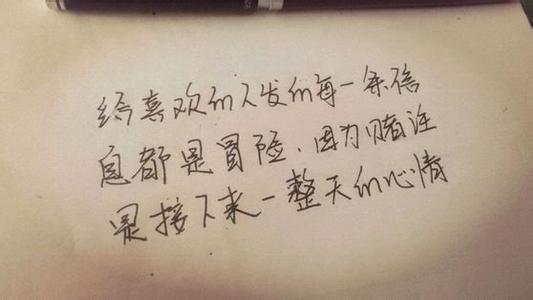 给喜欢的人发的每一条信
息都是冒险、因为赌注
是接下来一整天的心情